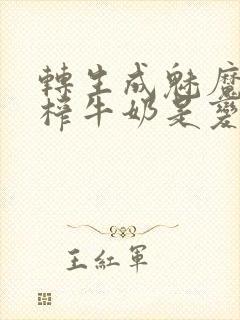 轉生成魅魔
榨牛奶是變
王紅軍